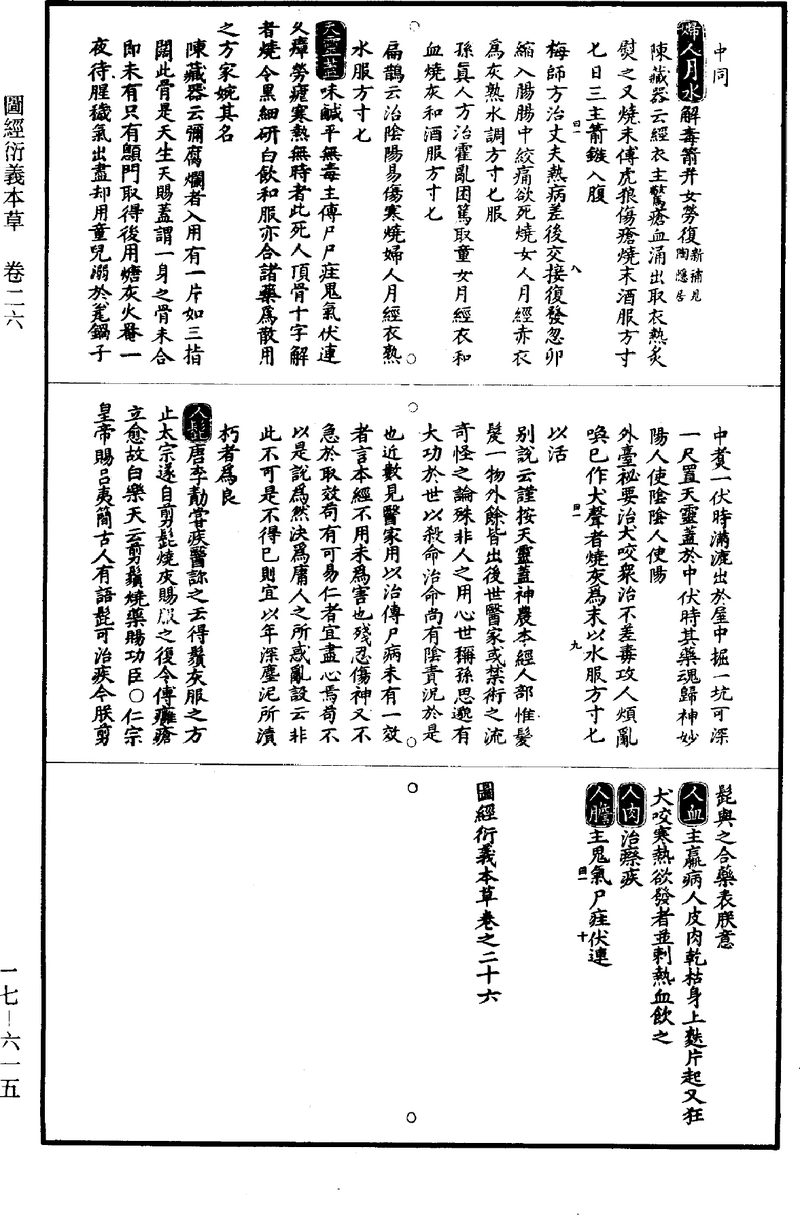 中同
婦人月水解毒箭并女勞復新補見陶隱居
陳藏器云經衣主驚瘡血涌出取衣熱炙
熨之又燒末傅虎狼傷瘡燒末酒服方寸
七日三主箭鏃入腹
梅師方治丈夫熱病差後交接復發忽卵
縮入腸腸中絞痛欲死燒女人月經赤衣
為灰熟水調方寸七服
孫真人方治霍亂困篤取童女月經衣和
血燒灰和酒服方寸七
扁鵲云治陰陽易傷寒燒婦人月經衣熱
水服方寸七
天靈蓋味鹹平無毒主傳尸尸疰鬼氣伏連
久瘴勞瘧寒熱無時者此死人頂骨十字解
者燒令黑細研白飲和服亦合諸藥為散用
之方家婉其名
陳藏器云彌腐爛者入用有一片如三指
闊此骨是天生天賜蓋謂一身之骨未合
即未有只有顖門取得後用煻灰火罨一
夜待腥穢氣出盡却用童兒溺於瓷鍋子
中煑一伏時滿漉出於屋中掘一坑可深
一尺置天靈蓋於中伏時其藥魂歸神妙
陽人使陰陰人使陽
外臺祕要治犬咬衆治不差毒攻人煩亂
喚已作犬聲者燒灰為末以水服方寸七
以活
別說云謹按天靈蓋神農本經人部惟髮
髲一物外餘皆出後世醫家或禁術之流
奇怪之論殊非人之用心世稱孫思邈有
大功於世以殺命治命尚有陰責況於是
也近數見醫家用以治傳尸病未有一效
者言本經不用未為害也殘忍傷神又不
急於取效苟有可易仁者宜盡心焉苟不
以是說為然決為庸人之所惑亂設云非
此不可是不得已則宜以年深塵泥所漬
朽者為良
人髭唐李勣嘗疾醫診之云得鬚灰服之方
止太宗遂自剪髭燒灰賜服之復令傅癰瘡
立愈故白樂天云剪鬚燒藥賜功臣○仁宗
皇帝賜呂夷簡古人有語髭可治疾今朕剪
髭與之合藥表朕意
人血主羸病人皮肉乾枯身上麩片起又狂
犬咬寒熱欲發者並刺熱血飲之
人肉治瘵疾
人膽主鬼氣尸疰伏連
圖經衍義本草卷之二十六
圖經衍義本草 卷二六
一七—六一五